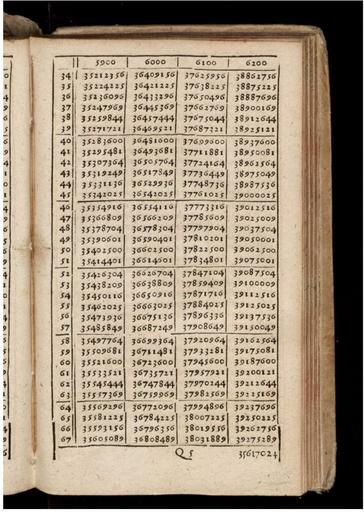 5900 6000 6100 6200
34 35212356 36409156 37625956 38862756
35 35224225 36421225 37638225 38875225
36 35236096 36433296 37650496 38887696
37 35247969 36445369 37662769 38900169
38 35259844 36457444 37675044 38912644
39 35271721 36469521 37687321 38925121
40 35283600 36481600 37699600 38937600
41 35295481 36493681 37711881 38950081
42 35307364 36505764 37724164 38962564
43 35319249 36517849 37736449 38975049
44 35331136 36529936 37748736 38987536
45 35342025 36542025 37761025 39000025
46 35354916 36554116 37773316 39012516
47 35366809 36566209 37785609 39025009
48 35378704 36578304 37797904 39037504
49 35390601 36590401 37810201 39050001
50 35402500 36602500 37822500 39062500
51 35414401 36614601 37834801 39075001
52 35426304 36626704 37847104 39087504
53 35438209 36638809 37859409 39100009
54 35450116 36650916 37871716 39112516
55 35462025 36663025 37884025 39125025
56 35473936 36675136 37896336 39137536
57 35485849 36687249 37908649 39150049
58 35497764 36699364 37920964 39162564
59 35509681 36711481 37933281 39175081
60 35521600 36723600 37945600 39187600
61 35533521 36735721 37957921 39200121
62 35545444 36747844 37970244 39212644
63 35557369 36759969 37982569 39225169
64 35569296 36772096 37994896 39237696
65 35581225 36784225 38007225 39250225
66 35593156 36796356 38019556 39262756
67 35605089 36808489 38031889 39275289
Q 5 35617024